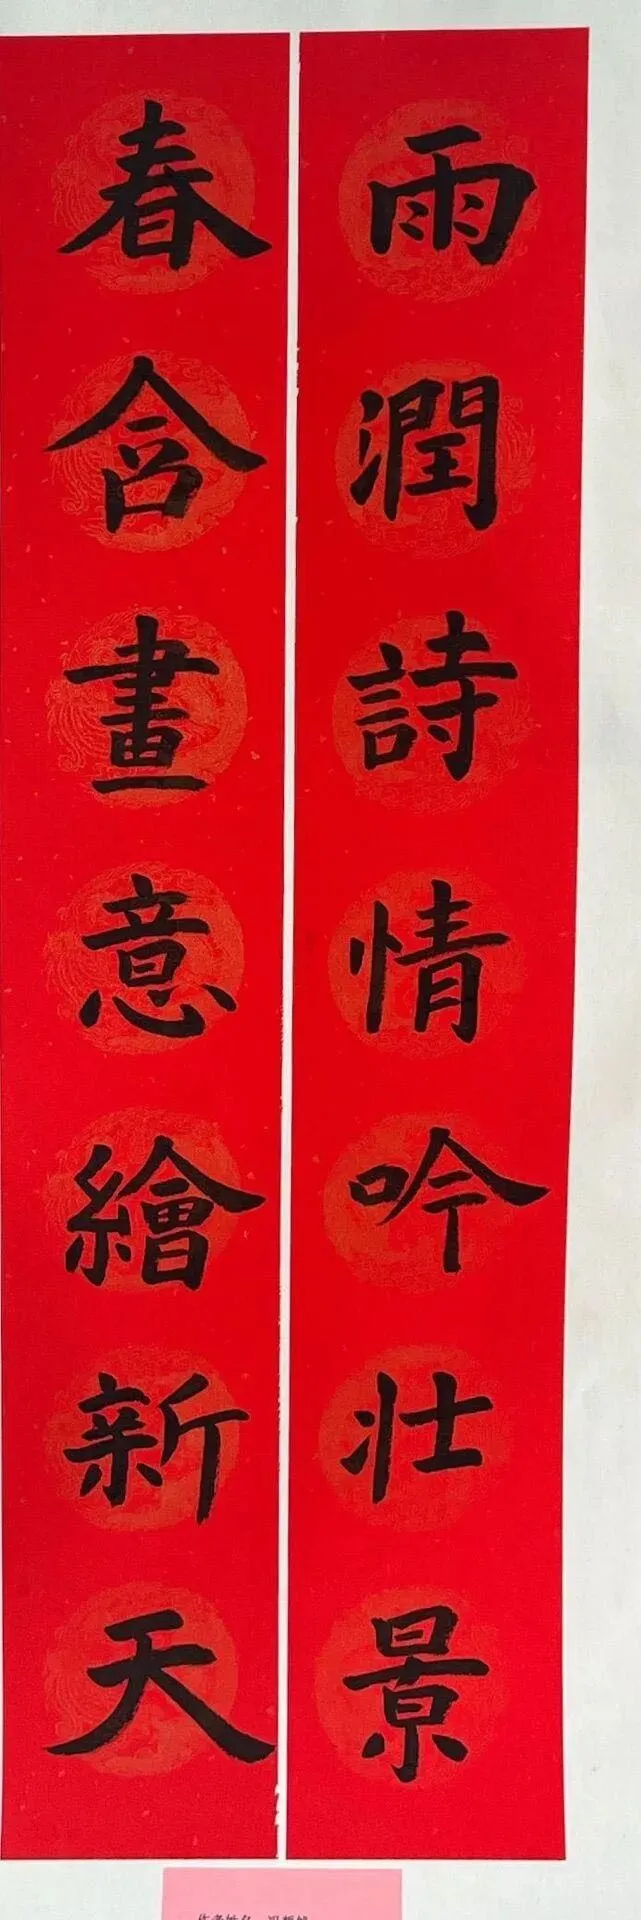 雨潤詩情吟壯景
春含畫意繪新天